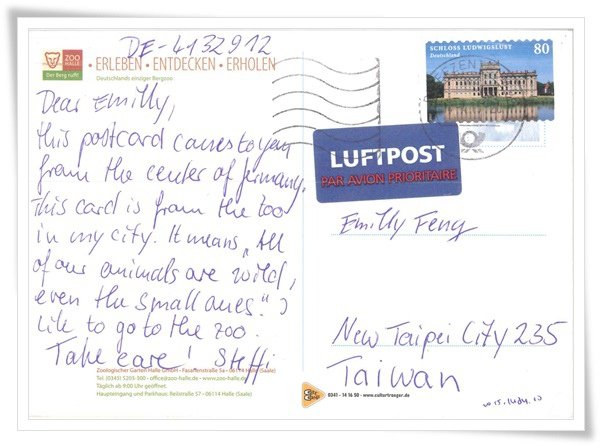 DE-4132912
ZOO HALLE
Der Berg ruft!
• ERLEBEN • ENTDECKEN • ERHOLEN
Deutschlands einziger Bergzoo
Dear Emilly,
this postcard comes to you
from the center of Germany.
This card is from the zoo
in my city. It means „All
of our animals are wild,
even the small ones." I
like to go to the zoo.
Take care! Steffi
Zoologischer Garten Halle GmbH • Fasanenstraße 5a • 06114 Halle (Saale)
Tel. (0345) 5203-300 • office@zoo-halle.de • www.zoo-halle.de
Täglich ab 9.00 Uhr geöffnet
Haupteingang und Parkhaus: Reilstraße 57 • 06114 Halle (Saale)
SCHLOSS LUDWIGSLUST
Deutschland
80
LUFTPOST
PAR AVION PRIORITAIRE
Emilly Feng
New Taipei City 235
Taiwan
0341 - 14 16 50 - www.culturtraeger.de